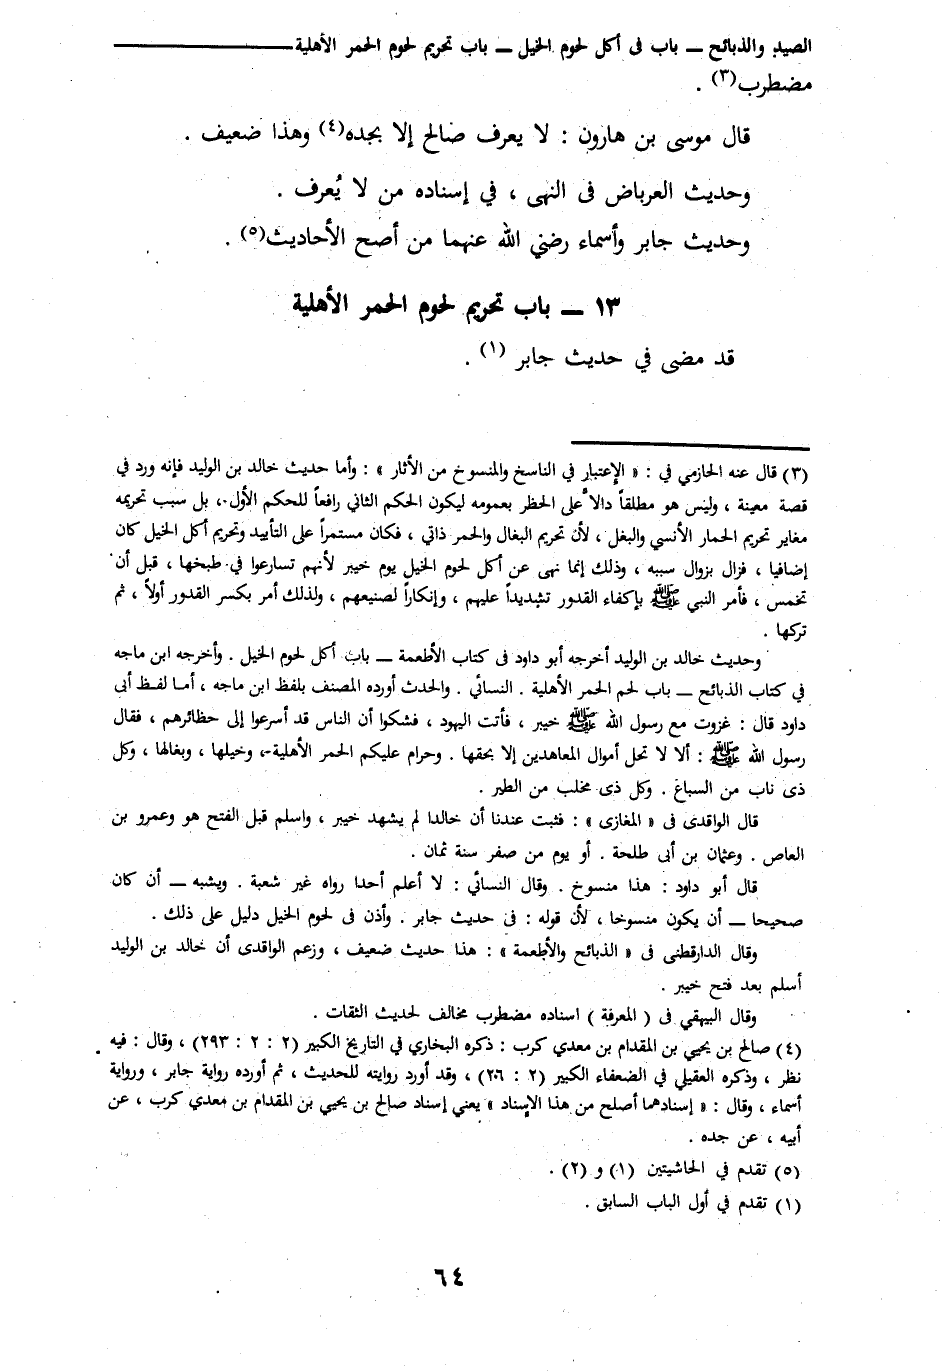 الصيد والذبائح ــ باب فى أكل لحوم الخيل ــ باب تحريم لحوم الحمر الأهلية
مضطرب(٣) .
قال موسى بن هارون : لا يعرف صالح إلا بجده(٤) وهذا ضعيف .
وحديث العرباض فى النهى ، في إسناده من لا يُعرف .
وحديث جابر وأسماء رضي الله عنهما من أصح الأحاديث(٥) .
١٣ ــ باب تحريم لحوم الحمر الأهلية
قد مضى في حديث جابر (١) .
(٣) قال عنه الحازمي في : « الإعتبار في الناسخ والمنسوخ من الأثار » : وأما حديث خالد بن الوليد فإنه ورد في
قصة معينة ، وليس هو مطلقاً دالاً على الحظر بعمومه ليكون الحكم الثاني رافعاً للحكم الأول ، بل سبب تحريمه
مغاير تحريم الحمار الأنسي والبغل ، لأن تحريم البغال والحمر ذاتي ، فكان مستمراً على التأبيد وتحريم أكل الخيل كان
إضافيا ، فزال بزوال سببه ، وذلك إنما نهى عن أكل لحوم الخيل يوم خيبر لأنهم تسارعوا في طبخها ، قبل أن
تخمس ، فأمر النبي ﷺ بإكفاء القدور تشديداً عليهم ، وإنكاراً لصنيعهم ، ولذلك أمر بكسر القدور أولاً ، ثم
تركها .
وحديث خالد بن الوليد أخرجه أبو داود فى كتاب الأطعمة ــ باب أكل لحوم الخيل . وأخرجه ابن ماجه
في كتاب الذبائح ــ باب لحم الحمر الأهلية . النسائي . والحدث أورده المصنف بلفظ ابن ماجه ، أما لفظ أبى
داود قال : غزوت مع رسول الله ﷺ خيبر ، فأتت اليهود ، فشكوا أن الناس قد أسرعوا إلى حظائرهم ، فقال
رسول الله ﷺ : ألا لا تحل أموال المعاهدين إلا بحقها . وحرام عليكم الحمر الأهلية ، وخيلها ، وبغالها ، وكل
ذى ناب من السباع . وكل ذى مخلب من الطير .
قال الواقدى فى « المغازى » : فثبت عندنا أن خالدا لم يشهد خيبر ، واسلم قبل الفتح هو وعمرو بن
العاص . وعثمان بن أبى طلحة . أو يوم من صفر سنة ثمان .
قال أبو داود : هذا منسوخ . وقال النسائي : لا أعلم أحدا رواه غير شعبة . ويشبه ــ أن كان
صحيحا ــ أن يكون منسوخا ، لأن قوله : فى حديث جابر . وأذن فى لحوم الخيل دليل على ذلك .
وقال الدارقطنى فى « الذبائح والأطعمة » : هذا حديث ضعيف ، وزعم الواقدى أن خالد بن الوليد
أسلم بعد فتح خيبر .
وقال البيهقي فى ( المعرفة ) اسناده مضطرب مخالف لحديث الثقات .
(٤) صالح بن يحيي بن المقدام بن معدي كرب : ذكره البخاري في التاريخ الكبير (٢ : ٢ : ٢٩٣) ، وقال : فيه
نظر ، وذكره العقيلي في الضعفاء الكبير (٢ : ٢٠٦) ، وقد أورد روايته للحديث ، ثم أورده رواية جابر ، ورواية
أسماء ، وقال : « إسنادهما أصلح من هذا الإسناد » يعني إسناد صالح بن يحيي بن المقدام بن معدي كرب ، عن
أبيه ، عن جده .
(٥) تقدم في الحاشيتين (١) و (٢) .
(١) تقدم في أول الباب السابق .
٦٤